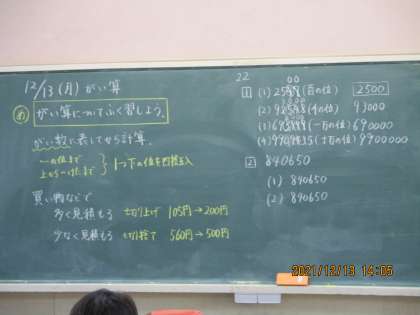 12/13(月)がい算
め がい算についてふく習しよう。
がい数で表してから計算。
一の位まで
上から一けたまで
1つ下の位を四捨五入
買い物などで
多く見積もる 切り上げ 105円→200円
少なく見積もる 切り捨て 560円→500円
22
1 (1) (百の位) 2500
(2) (千の位) 93000
(3) (一万の位) 690000
(4) (十万の位) 9900000
2 840650
(1) 840650
(2) 840650
2021/12/13 14:05